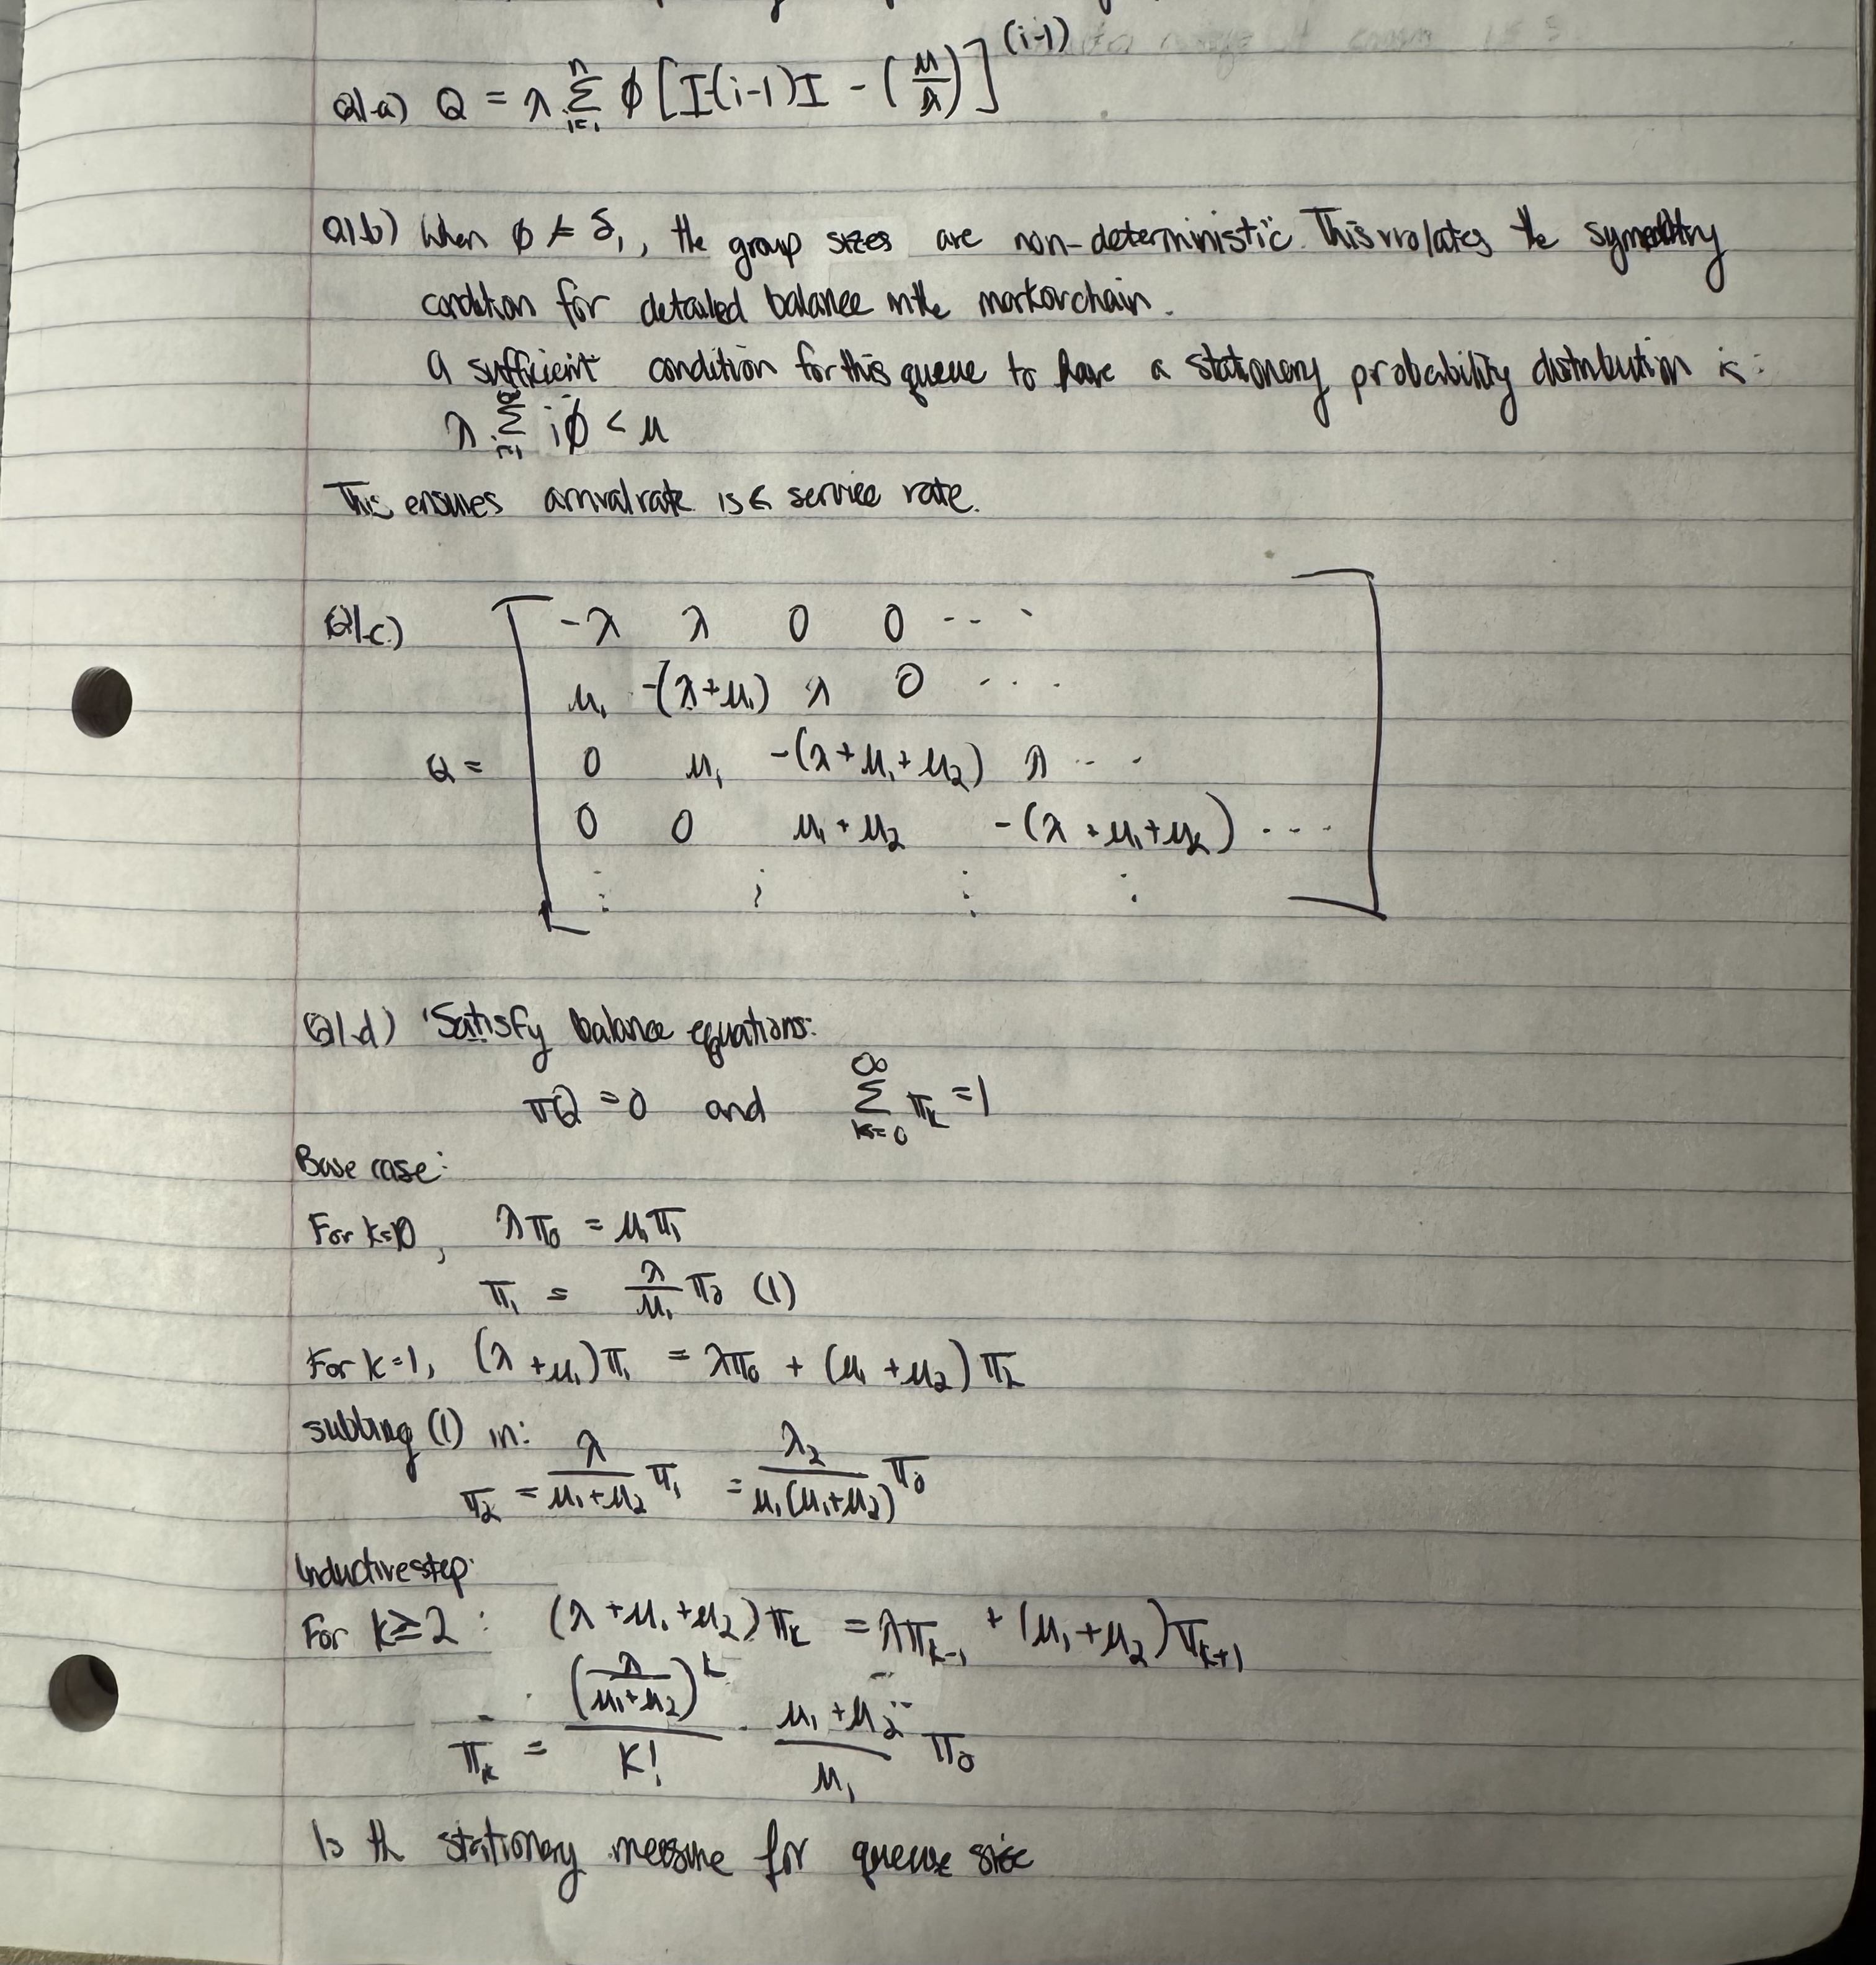 Q1.a) Q = λ Σ_{i=1}^{n} φ [I(i-1)I - (μ/λ)]^{(i-1)}
Q1.b) When φ ≠ δ₁, the group sizes are non-deterministic. This violates the symmetry
condition for detailed balance in the markov chain.
A sufficient condition for this queue to have a stationary probability distribution is:
λ Σ_{i=1}^{∞} iφ < μ
This ensures arrival rate is ≤ service rate.
Q1.c)
-λ λ 0 0 ...
μ₁ -(λ+μ₁) λ 0 ...
Q = 0 μ₁ -(λ+μ₁+μ₂) λ ...
0 0 μ₁+μ₂ -(λ+μ₁+μ₂) ...
⋮ ⋮ ⋮ ⋮
Q1.d) Satisfy balance equations:
πQ = 0 and Σ_{k=0}^{∞} π_k = 1
Base case:
For k=0, λπ₀ = μ₁π₁
π₁ = λ/μ₁ π₀ (1)
For k=1, (λ+μ₁)π₁ = λπ₀ + (μ₁+μ₂)π₂
subbing (1) in:
π₂ = λ/(μ₁+μ₂) π₁ = λ₂/(μ₁(μ₁+μ₂)) π₀
Inductive step:
For k≥2: (λ+μ₁+μ₂)π_k = λπ_{k-1} + (μ₁+μ₂)π_{k+1}
π_k = (λ/(μ₁+μ₂))^k / k! · (μ₁+μ₂)/μ₁ π₀
Is th stationary measure for queue size